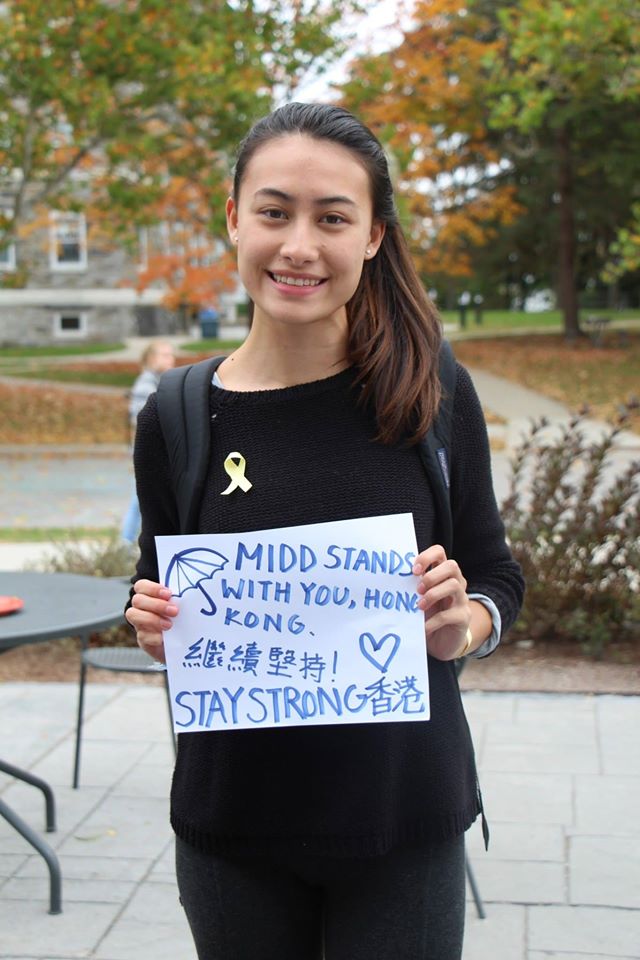 MIDD STANDS
WITH YOU, HONG
KONG.
繼續堅持!
STAY STRONG 香港